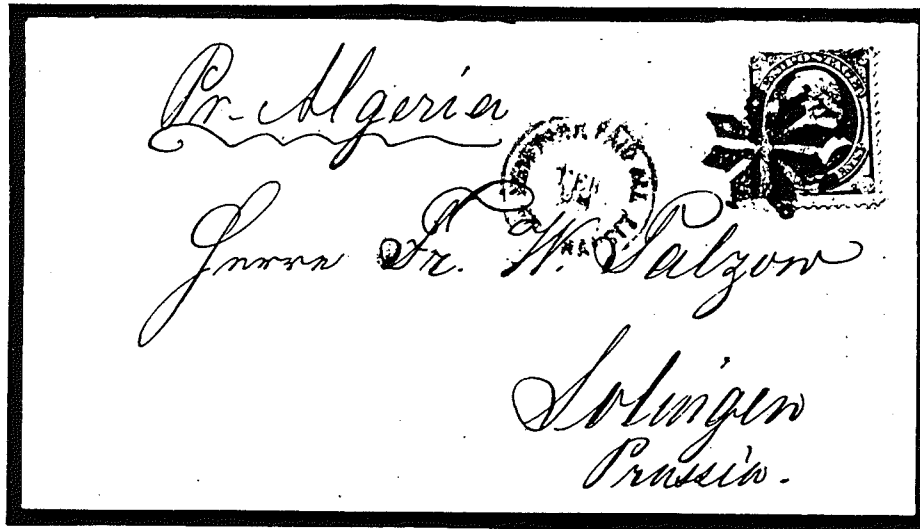 Pr. Algeria
NEW YORK PAID ALL
Herrn Fr. W. Salzow
Solingen
Prussia.